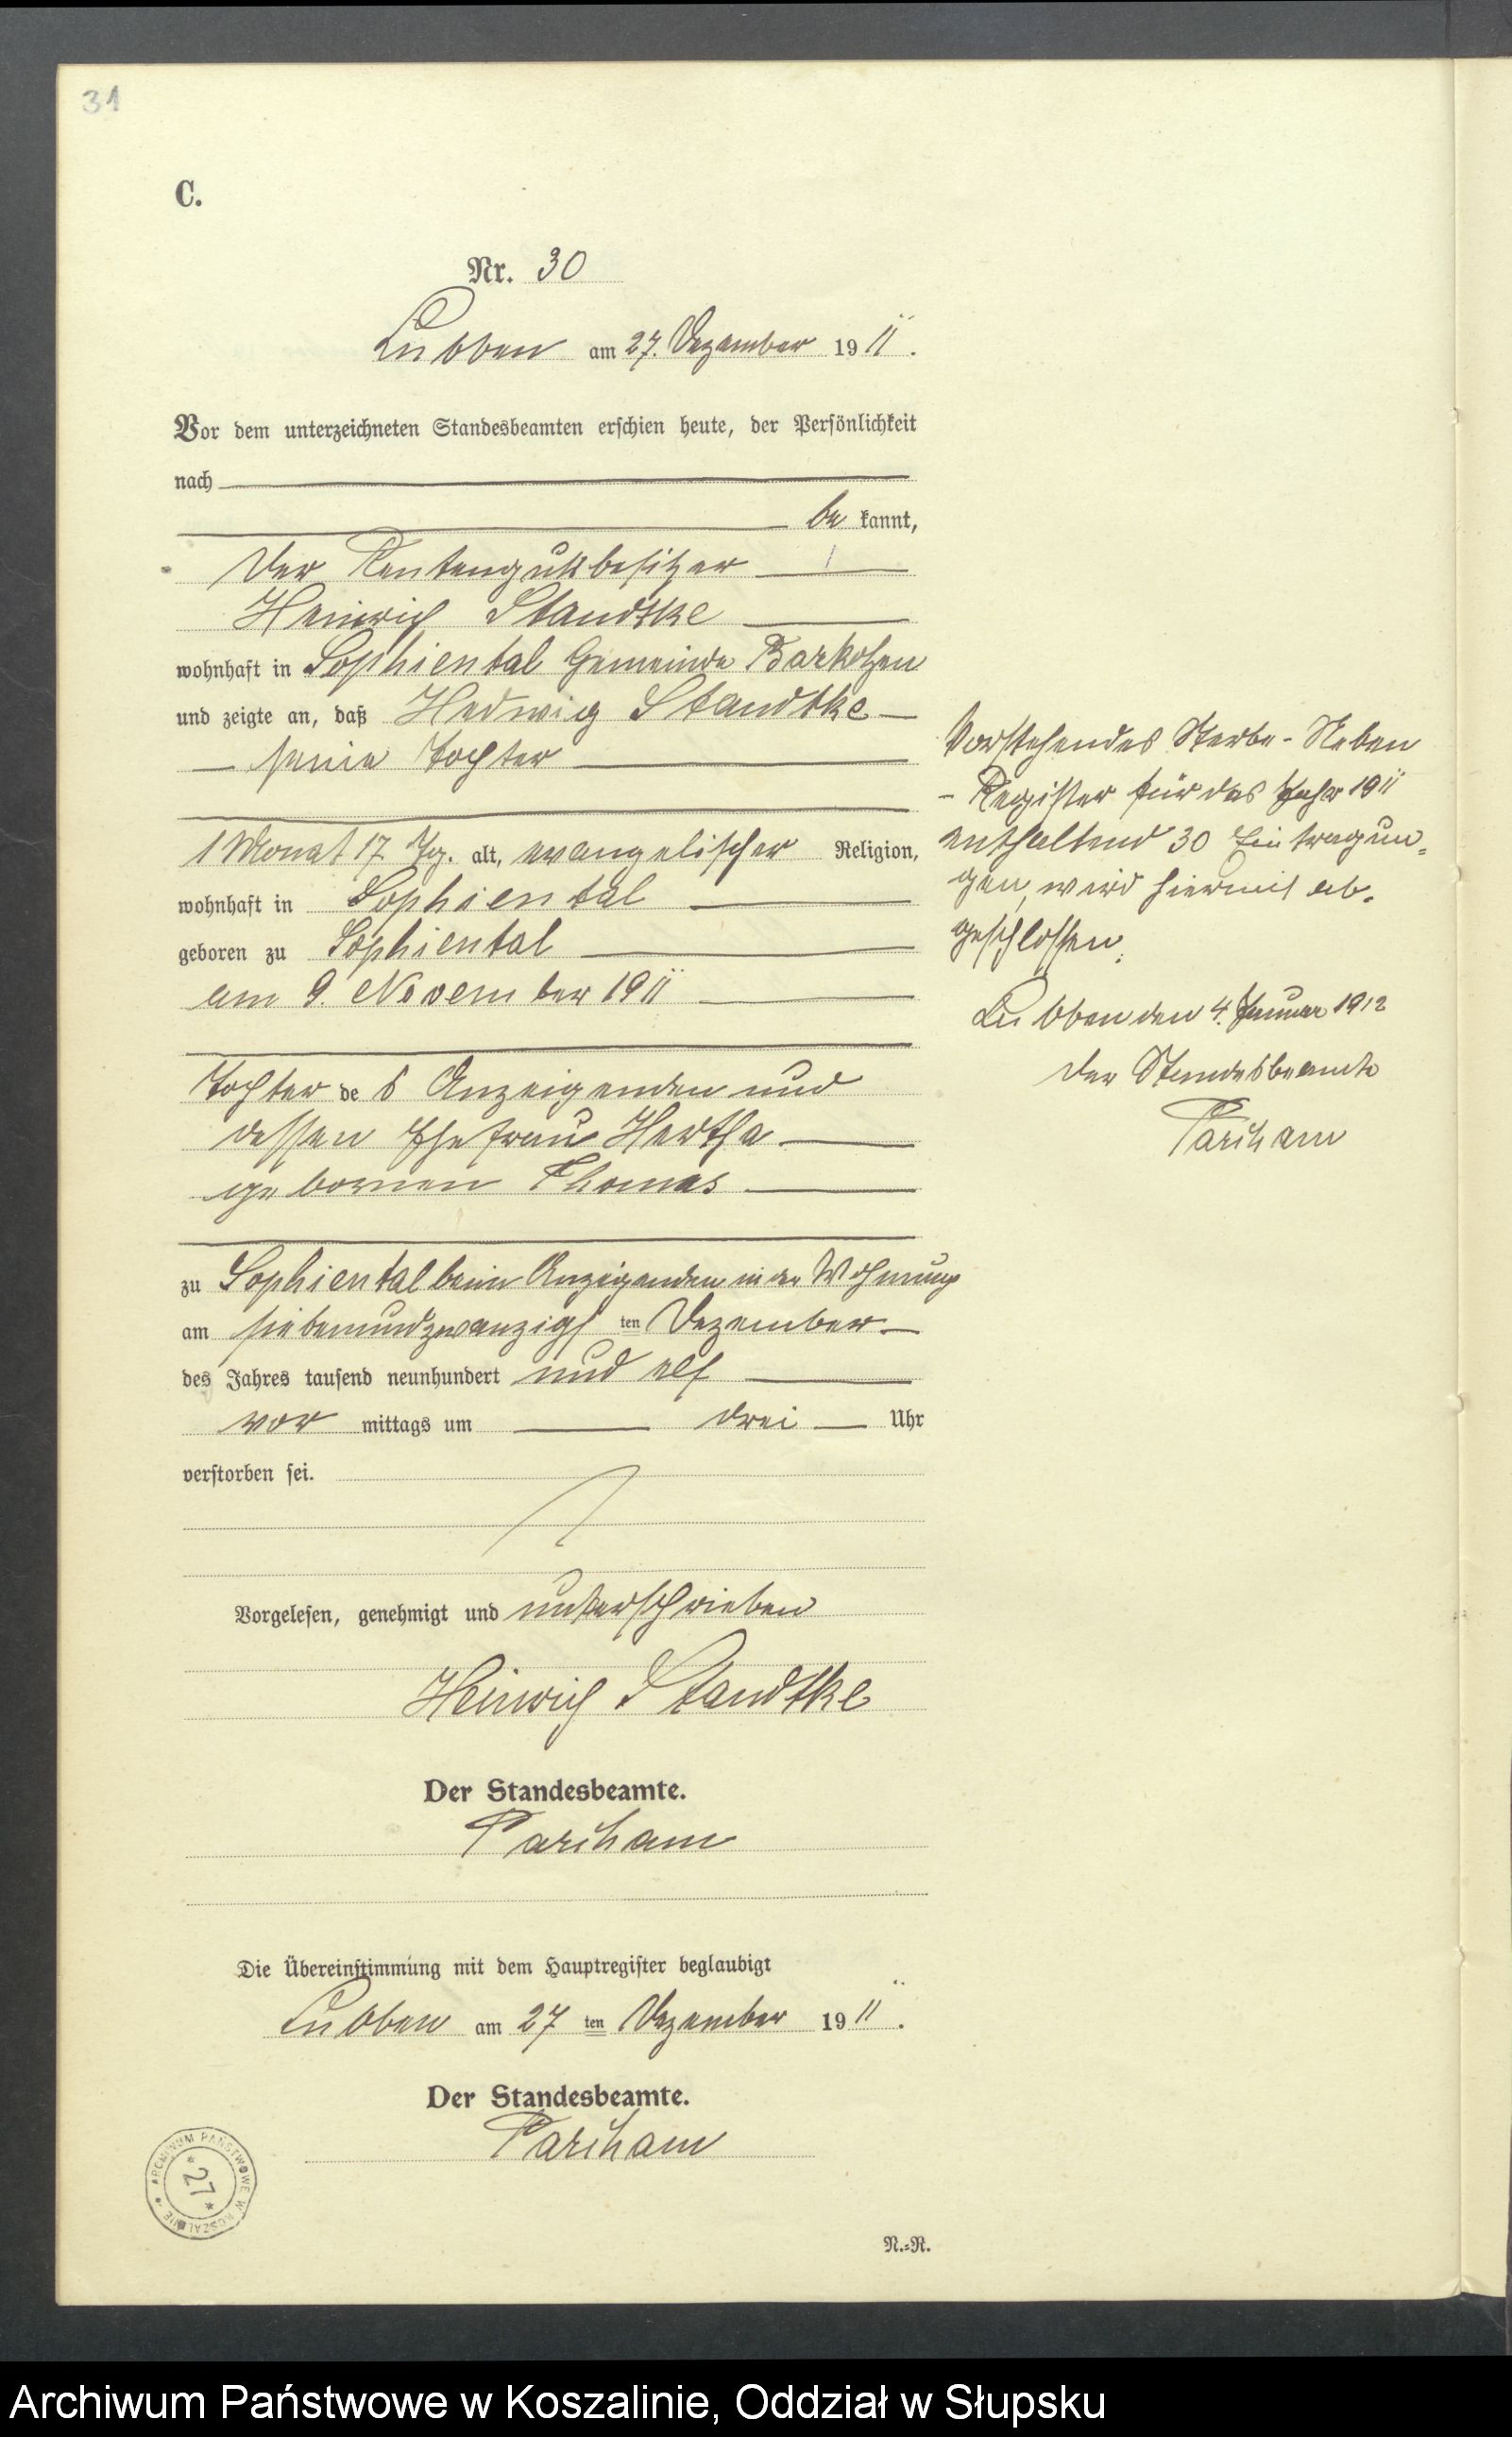 31
C.
Nr. 30
Lubben am 27. Dezember 1911.
Vor dem unterzeichneten Standesbeamten erschien heute, der Persönlichkeit
nach
be kannt,
der Rentengutsbesitzer
Heinrich Standtke
wohnhaft in Sophiental Gemeinde Barkotzen
und zeigte an, daß Hedwig Standtke
seine Tochter
1 Monat 17 Tg. alt, evangelischer Religion,
wohnhaft in Sophiental
geboren zu Sophiental
am 9. November 1911
Tochter des Anzeigenden und
dessen Ehefrau Hertha
gebornen Thomas
zu Sophiental beim Anzeigenden in der Wohnung
am siebenundzwanzigsten Dezember
des Jahres tausend neunhundert und elf
vor mittags um drei Uhr
verstorben sei.
Vorgelesen, genehmigt und unterschrieben
Heinrich Standtke
Der Standesbeamte.
Die Übereinstimmung mit dem Hauptregister beglaubigt
Lubben am 27 ten Dezember 1911.
Der Standesbeamte.
N.=R.
Vorstehendes Sterbe-Neben
-Register für das Jahr 1911
enthaltend 30 Eintragun=
gen, wird hiermit ab-
geschlossen.
Lubben den 4. Januar 1912
Der Standesbeamte
ARCHIWUM PAŃSTWOWE W KOSZALINIE * 27 *
Archiwum Państwowe w Koszalinie, Oddział w Słupsku